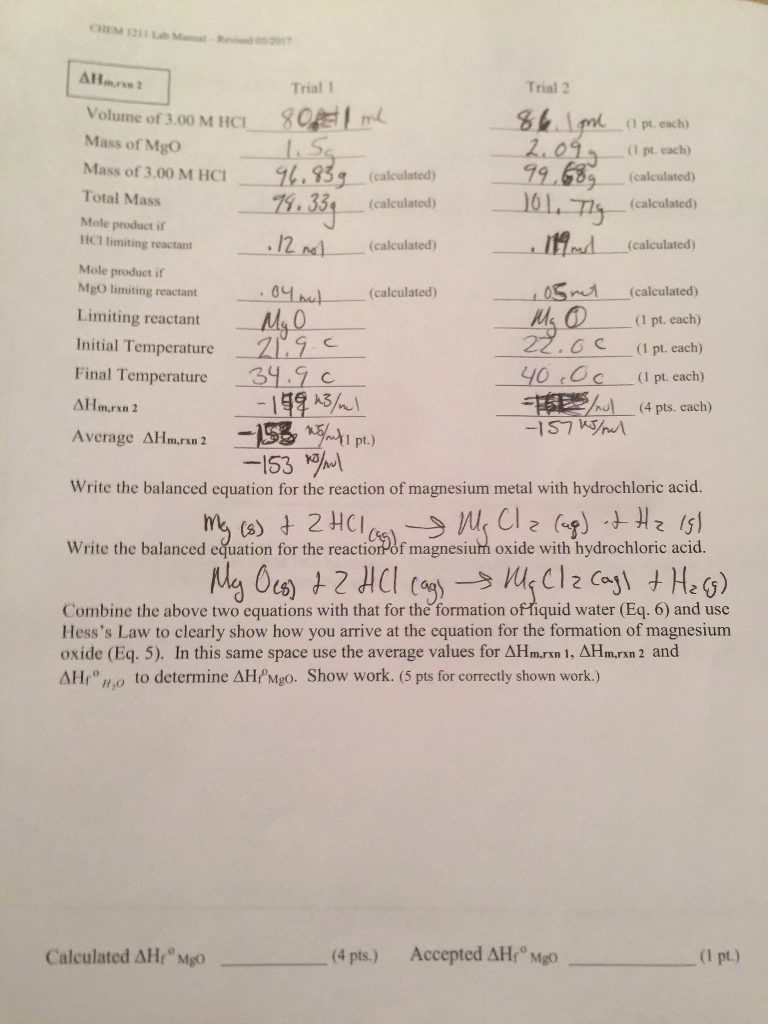 CHEM 1211 Lab Manual - Revised 05/2017
ΔHm,rxn 2 Trial 1 Trial 2
Volume of 3.00 M HCl 80.1 ml 86.1 ml (1 pt. each)
Mass of MgO 1.5g 2.09g (1 pt. each)
Mass of 3.00 M HCl 96.83g (calculated) 99.68g (calculated)
Total Mass 98.33g (calculated) 101.77g (calculated)
Mole product if
HCl limiting reactant .12 mol (calculated) mol (calculated)
Mole product if
MgO limiting reactant .04 mol (calculated) .05 mol (calculated)
Limiting reactant MgO MgO (1 pt. each)
Initial Temperature 21.9 c 22.0 c (1 pt. each)
Final Temperature 34.9 c 40.0 c (1 pt. each)
ΔHm,rxn 2 kJ/mol /mol (4 pts. each)
Average ΔHm,rxn 2 kJ/mol (1 pt.) -157 kJ/mol
-153 kJ/mol
Write the balanced equation for the reaction of magnesium metal with hydrochloric acid.
Mg (s) + 2 HCl (aq) → MgCl2 (aq) + H2 (g)
Write the balanced equation for the reaction of magnesium oxide with hydrochloric acid.
MgO(s) + 2 HCl (aq) → MgCl2 (aq) + H2(g)
Combine the above two equations with that for the formation of liquid water (Eq. 6) and use
Hess's Law to clearly show how you arrive at the equation for the formation of magnesium
oxide (Eq. 5). In this same space use the average values for ΔHm,rxn 1, ΔHm,rxn 2 and
ΔHf° H2O to determine ΔHf°MgO. Show work. (5 pts for correctly shown work.)
Calculated ΔHf° MgO (4 pts.) Accepted ΔHf° MgO (1 pt.)